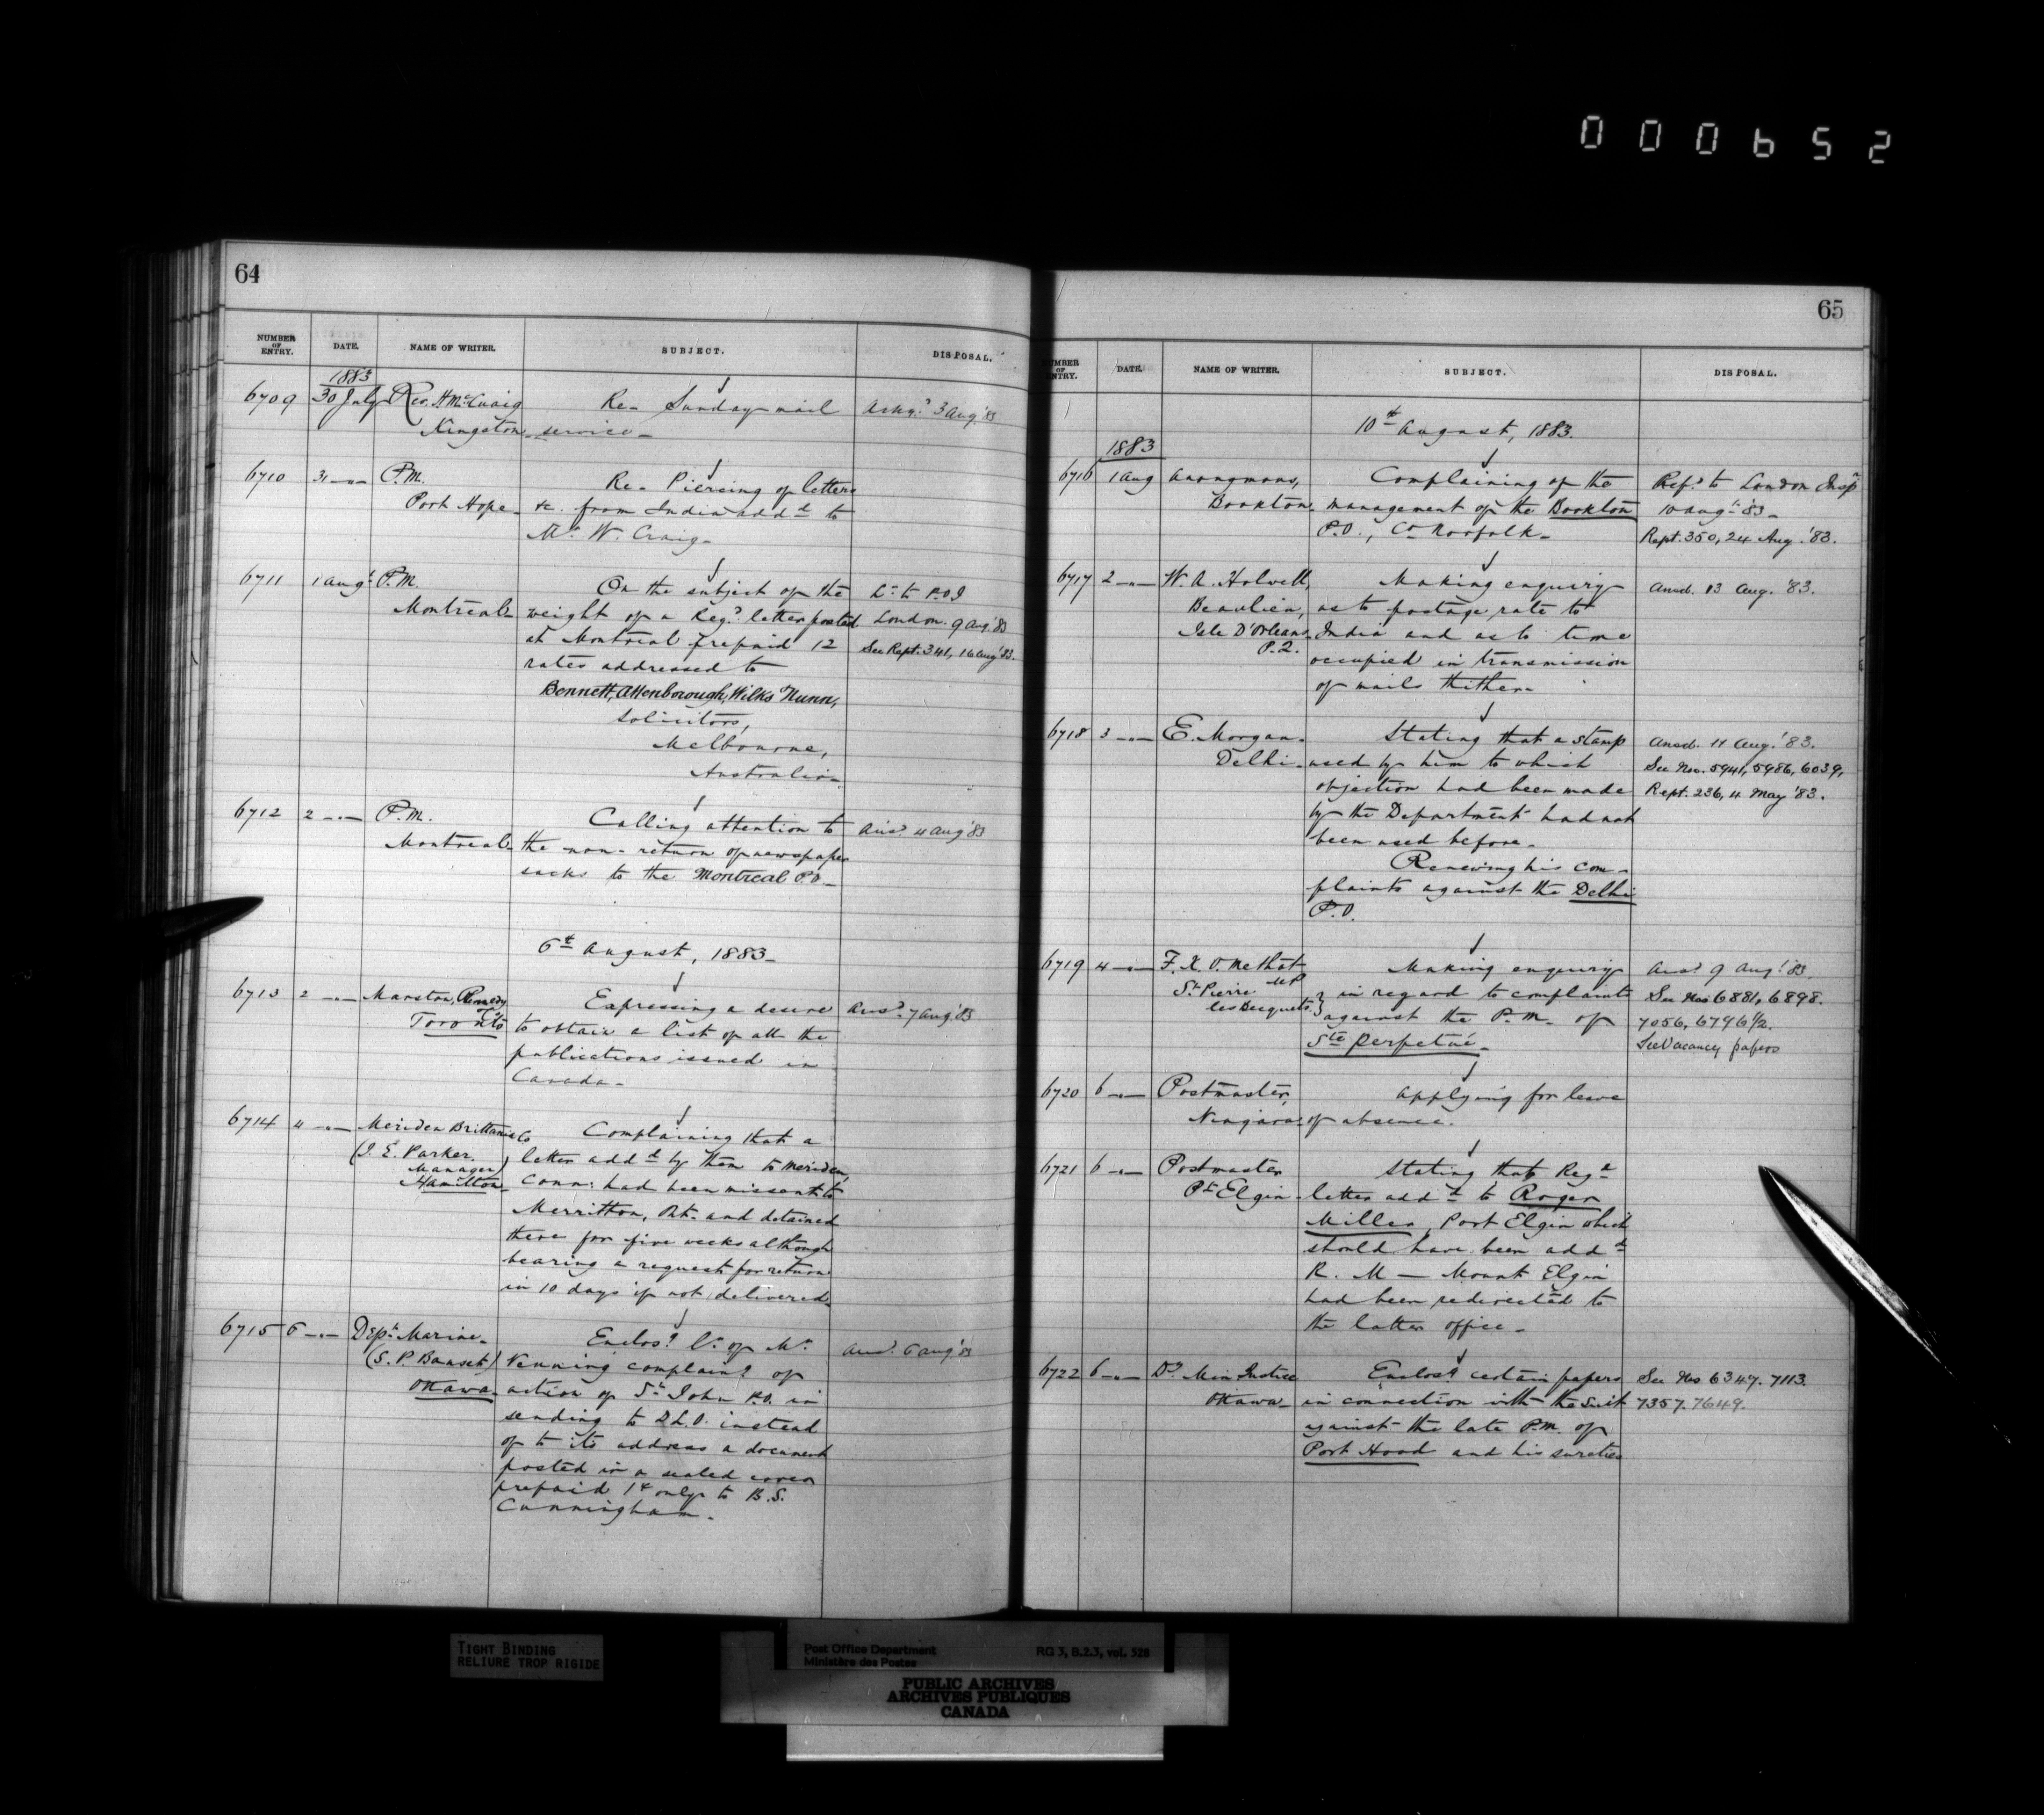 000652
64
NUMBER OF ENTRY. DATE. NAME OF WRITER. SUBJECT. DISPOSAL.
1883
6709 30 July Rev. H McCuaig Re- Sunday mail Ackg.d 3 Aug. '83
Kingston service-
6710 31 -"- P.M. Re- Piercing of letters
Port Hope- &c. from India add.d to
Mr. W. Craig-
6711 1 Augt. P.M. On the subject of the Lr. to P.O.I
Montreal- weight of a Reg.d letter posted London. 9 Aug. '83
at Montreal prepaid 12 See Rept. 341, 16 Aug '83.
rates addressed to
Bennett, Attenborough, Wilks Nunn,
Solicitors,
Melbourne,
Australia-
6712 2 -"- P.M. Calling attention to Ansd. 4 Aug '83
Montreal- the non-return of newspaper
sacks to the Montreal P.O-
6th August, 1883-
6713 2 -"- Marston, Remedy Expressing a desire Ansd. 7 Aug '83
Co Toronto to obtain a list of all the
publications issued in
Canada-
6714 4 -"- Meriden Brittania Co Complaining that a
(J. E. Parker. letter add.d by them to Meriden,
Manager) Conn: had been missent to
Hamilton-
Merritton, Ont. and detained
there for five weeks although
bearing a request for return
in 10 days if not delivered-
6715 6 -"- Dept. Marine- Enclos.g lr. of Mr. Ansd. 6 Aug '83
(S. P. Bauset) Venning complain.g of
Ottawa- action of St. John P.O. in
sending to D.L.O. instead
of to its address a document
posted in a sealed cover
prepaid 1¢ only to B.S.
Cunningham-
65
NUMBER OF ENTRY. DATE. NAME OF WRITER. SUBJECT. DISPOSAL.
10th August, 1883.
1883
6716 1 Aug Anonymous, Complaining of the Ref.d to London Insp.r
Bookton, management of the Bookton 10 Aug. '83-
P.O., Co Norfolk- Rept. 350, 24 Aug. '83.
6717 2 -"- W. A. Holwell, Making enquiry Ansd. 13 Aug. '83.
Beaulieu, as to postage rate to
Isle D'Orleans India and as to time
P.Q. occupied in transmission
of mails thither-
6718 3 -"- E. Morgan- Stating that a stamp Ansd. 11 Aug. '83.
Delhi- used by him to which See Nos. 5941, 5986, 6039,
objection had been made Rept. 236, 4 May '83.
by the Department had not
been used before-
Renewing his com-
plaints against the Delhi
P.O.
6719 4 -"- F. X. O. Methot Making enquiry Ansd. 9 Aug. '83.
MP
St. Pierre in regard to complaints See Nos 6881, 6898.
les Becquets. against the P.M. of 7056, 6796½.
Ste Perpetué- See Vacancy papers
6720 6 -"- Postmaster, Applying for leave
Niagara of absence.
6721 6 -"- Postmaster Stating that Reg.d
Pt. Elgin- letter add.d to Roger
Miller, Port Elgin which
should have been add.d
R. M - Mount Elgin
had been redirected to
the latter office-
6722 6 -"- Dy Min Justice Enclos.g certain papers See Nos 6347. 7113.
Ottawa in connection with the suit 7357. 7649.
against the late P.M. of
Port Hood and his sureties
TIGHT BINDING
RELIURE TROP RIGIDE
Post Office Department RG 3, B.2.3, vol. 528
Ministère des Postes
PUBLIC ARCHIVES
ARCHIVES PUBLIQUES
CANADA